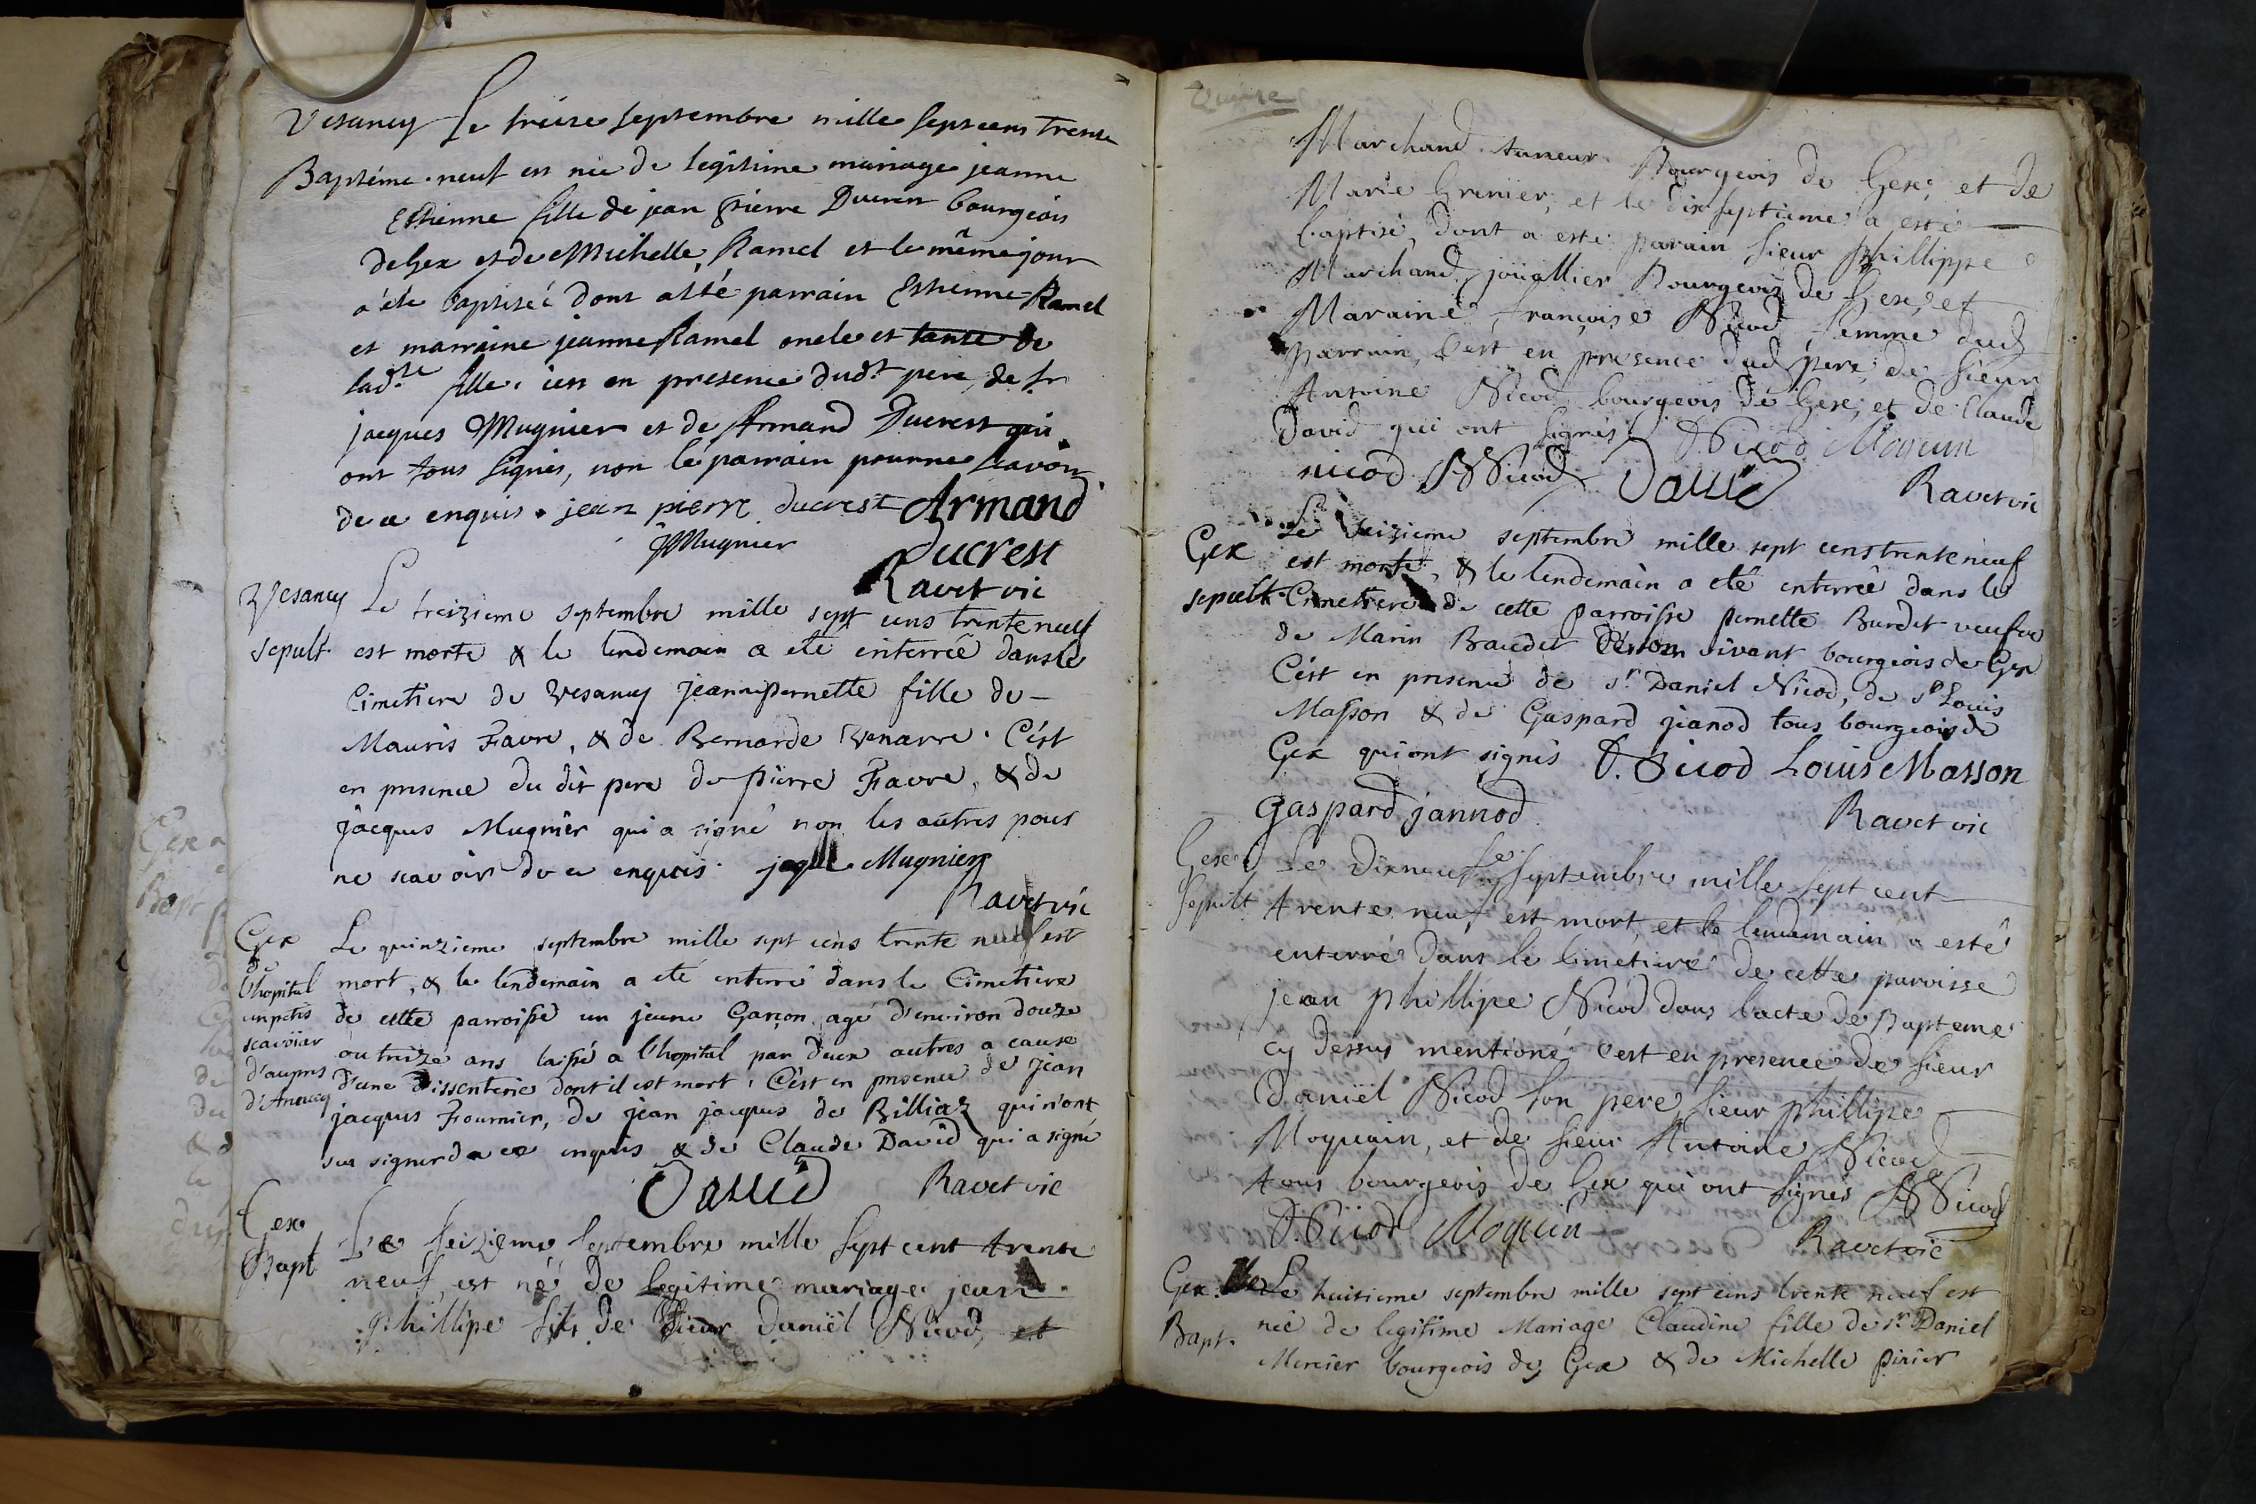 Vesancy Le treize septembre mille septcens trente
Baptéme neuf est née de legitime mariage jeanne
Estienne fille de jean pierre Ducrest bourgeois
de Gex et de Michelle Ramel et le même jour
a été baptisée dont a été parrain Estienne Ramel
et marraine jeanne Ramel oncle et tante de
lad.te fille. c'est en presence dud.t pere, de Sr
jacques Mugnier et de Armand Ducrest qui
ont tous signés, non le parrain pour ne scavoir
de ce enquis. jean pierre ducrest Armand
Mugnier ducrest
Ravet vic
Vesancy Le treizieme septembre mille sept cens trente neuf
sepult. est morte & le lendemain a eté enterrée dans le
Cimetiere de Vesancy jeanne pernette fille de
Mauris Favre, & de Bernarde Venarre. C'est
en presence du dit pere de pierre Favre, & de
jacques Mugnier qui a signé non les autres pour
ne scavoir de ce enquis. jaque Mugnier
Ravet vic
Gex Le quinzieme septembre mille sept cens trente neuf est
l'hopital mort, & le lendemain a eté enterré dans le Cimetiere
un petit de cette parroisse un jeune Garçon agé d'environ douze
scavoiar ou treize ans laissé a l'hopital par deux autres a cause
d'aupres d'une dissenterie dont il est mort. C'est en presence de jean
d'Annecy jacques Fournier, de jean jacques de Billiaz qui n'ont
sçu signer de ce enquis & de Claude David qui a signé
David Ravet vic
Gex Le seizieme septembre mille sept cent trente
Bapt neuf, est né de legitime mariage jean
phillipe fils de sieur Daniël Nicod, et
Marchand tanneur Bourgeois de Gex, et de
Marie Grenier, et le dixseptieme a esté
baptisé, dont a esté parain sieur phillippe
Marchand joüallier Bourgeois de Gex, et
Maraine, françoise Nicod, femme dud
parrain, c'est en presence dud pere, de sieur
Antoine Nicod bourgeois de Gex, et de Claude
David qui ont signés D. Nicod Moquin
nicod A Nicod David Ravet vic
Gex Le seizieme septembre mille sept cens trente neuf
sepult. est morte, & le lendemain a eté enterrée dans le
Cimetiere de cette parroisse pernette Burdet veufve
de Marin Baudet vivant bourgeois de Gex
C'est en presence de sr Daniel Nicod, de sr Louis
Masson & de Gaspard jianod tous bourgeois de
Gex qui ont signés D. Nicod Louis Masson
gaspard jannod Ravet vic
Gex Le dixneuf septembre mille sept cent
sepult trente neuf est mort, et le lendemain a esté
enterré dans le cimetiere de cette paroisse
jean phillipe Nicod dans l'acte de Bapteme
cy dessus mentioné, c'est en presence de sieur
Daniël Nicod son pere, sieur phillipe
Moquain, et de sieur Antoine Nicod
tous bourgeois de Gex qui ont signés A Nicod
D. Nicod Moquin Ravet vic
Gex Le huitieme septembre mille sept cens trente neuf est
Bapt. née de legitime Mariage Claudine fille de sr Daniel
Mercier bourgeois de Gex & de Michelle pirier